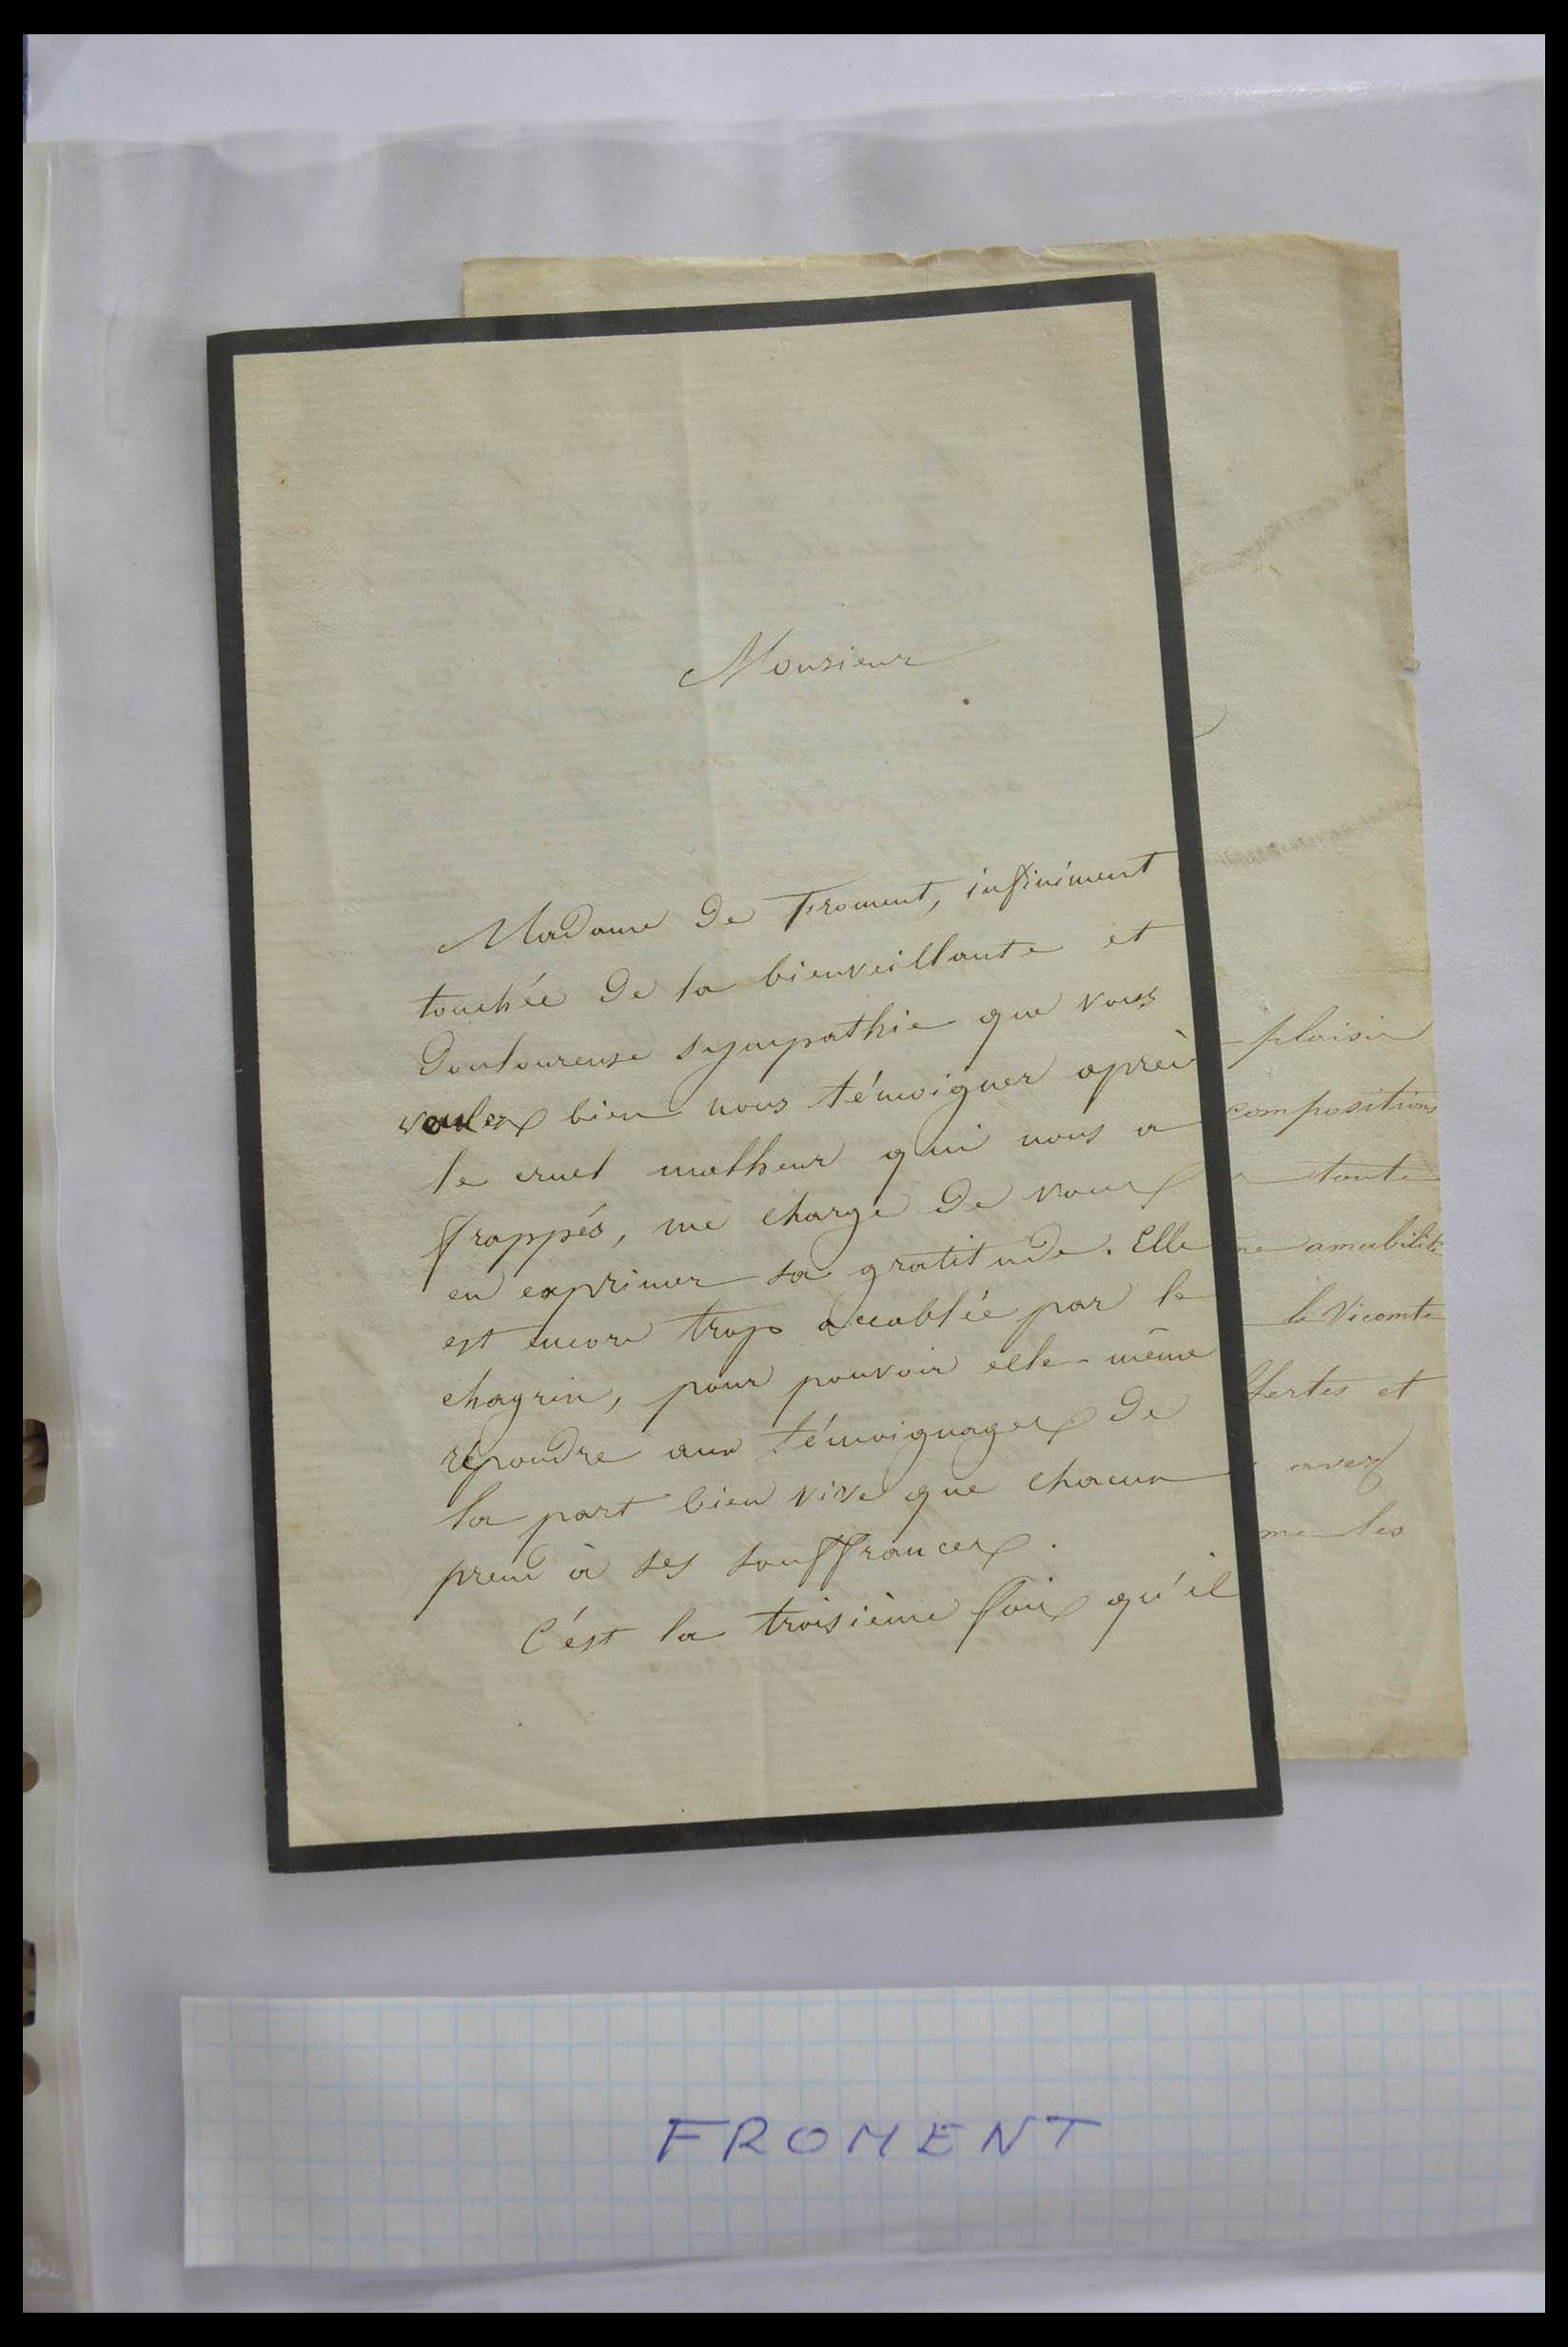 Monsieur
Madame de Froment, infiniment
touchée de la bienveillante et
douloureuse sympathie que vous
voulez bien nous témoigner après
le cruel malheur qui nous a
frappés, me charge de vous
en exprimer sa gratitude. Elle
est encore trop accablée par le
chagrin, pour pouvoir elle-même
répondre aux témoignages de
la part bien vive que chacun
prend à ses souffrances.
C'est la troisième fois qu'il
plaisir
compositions
toute
amabilité
le Vicomte
et
avez
les
FROMENT